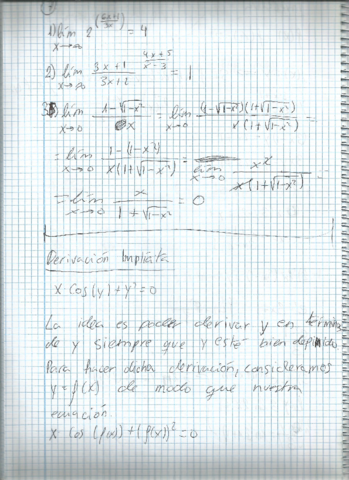 1) lím 2^(…) = 4
x→∞
2) lím (3x+1)/(3x+2)^((4x+5)/(x²-3)) = 1
x→∞
3) lím (1-√(1-x²))/x = lím ((1-√(1-x²))(1+√(1-x²)))/(x(1+√(1-x²))) =
x→0 x→0
= lím (1-(1-x²))/(x(1+√(1-x²))) = lím x²/(x(1+√(1-x²))) =
x→0 x→0
= lím x/(1+√(1-x²)) = 0
x→0
Derivación Implícita
x cos(y) + y² = 0
La idea es poder derivar y en términos
de y siempre que y esté bien definida
Para hacer dicha derivación, consideramos
y = f(x) de modo que nuestra
ecuación
x cos (f(x)) + (f(x))² = 0